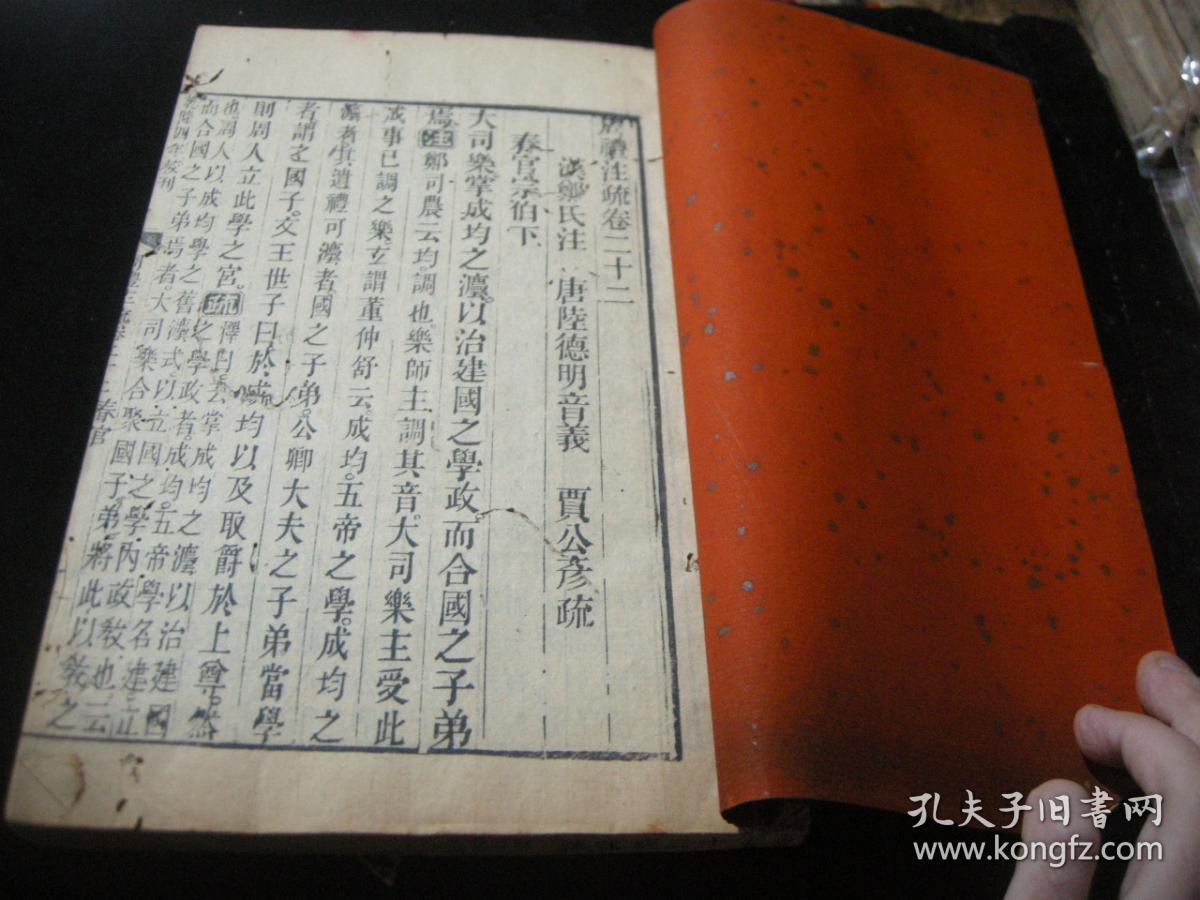 周禮注疏卷二十二
漢鄭氏注 唐陸德明音義 賈公彥疏
春官宗伯下
大司樂掌成均之灋以治建國之學政而合國之子弟
焉注鄭司農云均調也樂師主調其音大司樂主受此
成事已調之樂玄謂董仲舒云成均五帝之學成均之
灋者其遺禮可灋者國之子弟公卿大夫之子弟當學
者謂之國子文王世子曰於成均以及取爵於上尊然
則周人立此學之宮疏釋曰云掌成均之灋以治建國
之學政者成均五帝學名建立
也周人以成均學之舊灋式以立國之學內政教也云
而合國之子弟焉者大司樂合聚國子弟將此以教之
年校刊
春官
孔夫子旧书网
www.kongfz.com